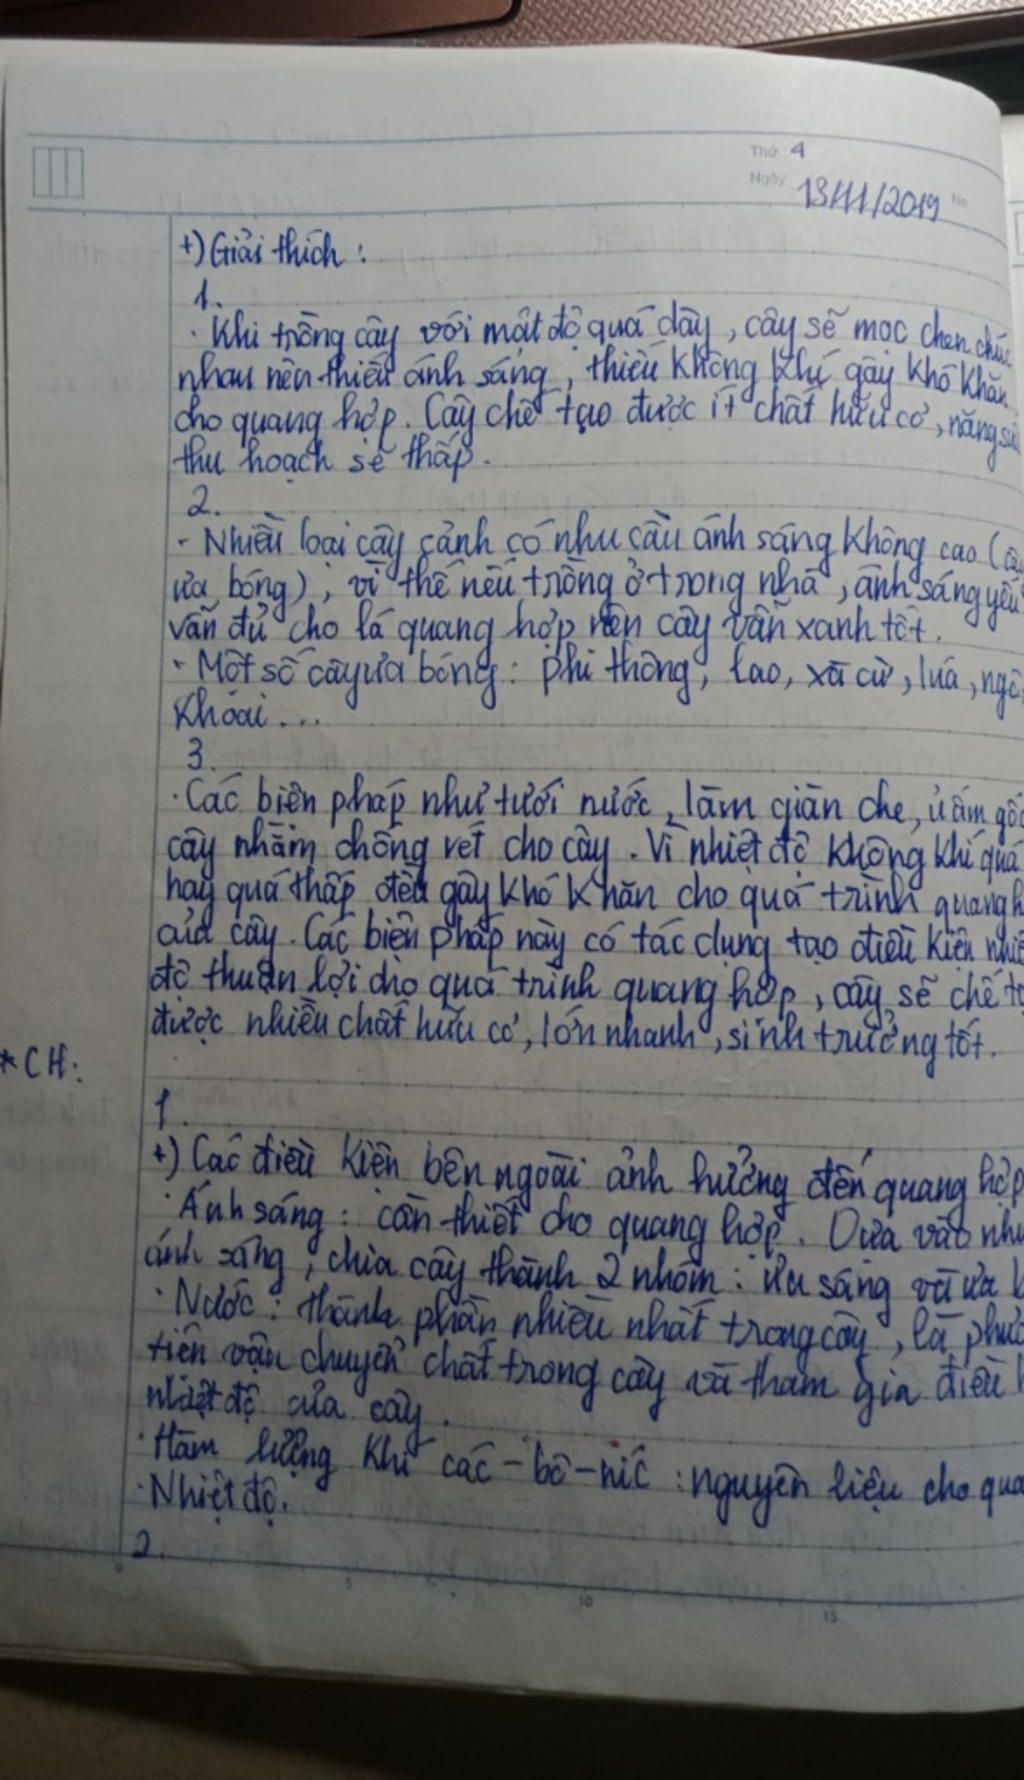 Thứ 4
Ngày 13/11/2019 No.
+) Giải thích :
1.
· Khi trồng cây với mật độ quá dày, cây sẽ mọc chen chúc
nhau nên thiếu ánh sáng, thiếu không khí gây khó khăn
cho quang hợp. Cây chế tạo được ít chất hữu cơ, năng su
thu hoạch sẽ thấp.
2.
- Nhiều loại cây cảnh có nhu cầu ánh sáng không cao (câ
ưa bóng), vì thế nếu trồng ở trong nhà, ánh sáng yếu
vẫn đủ cho lá quang hợp nên cây vẫn xanh tốt.
- Một số cây ưa bóng : phi thông, táo, xà cừ, lúa, ngô,
khoai...
3.
· Các biện pháp như tưới nước, làm giàn che, ủ ấm gốc
cây nhằm chống rét cho cây. Vì nhiệt độ không khí quá
hay quá thấp đều gây khó khăn cho quá trình quang h
của cây. Các biện pháp này có tác dụng tạo điều kiện nhiệ
độ thuận lợi cho quá trình quang hợp, cây sẽ chế tạ
được nhiều chất hữu cơ, lớn nhanh, sinh trưởng tốt.
* CH:
1.
+) Các điều kiện bên ngoài ảnh hưởng đến quang hợp
· Ánh sáng : cần thiết cho quang hợp. Dựa vào nhu
ánh sáng, chia cây thành 2 nhóm : ưa sáng và ưa b
· Nước : thành phần nhiều nhất trong cây, là phươ
tiện vận chuyển chất trong cây và tham gia điều h
nhiệt độ của cây.
· Hàm lượng khí các-bô-níc : nguyên liệu cho qua
· Nhiệt độ.
2.
0 5 10 15